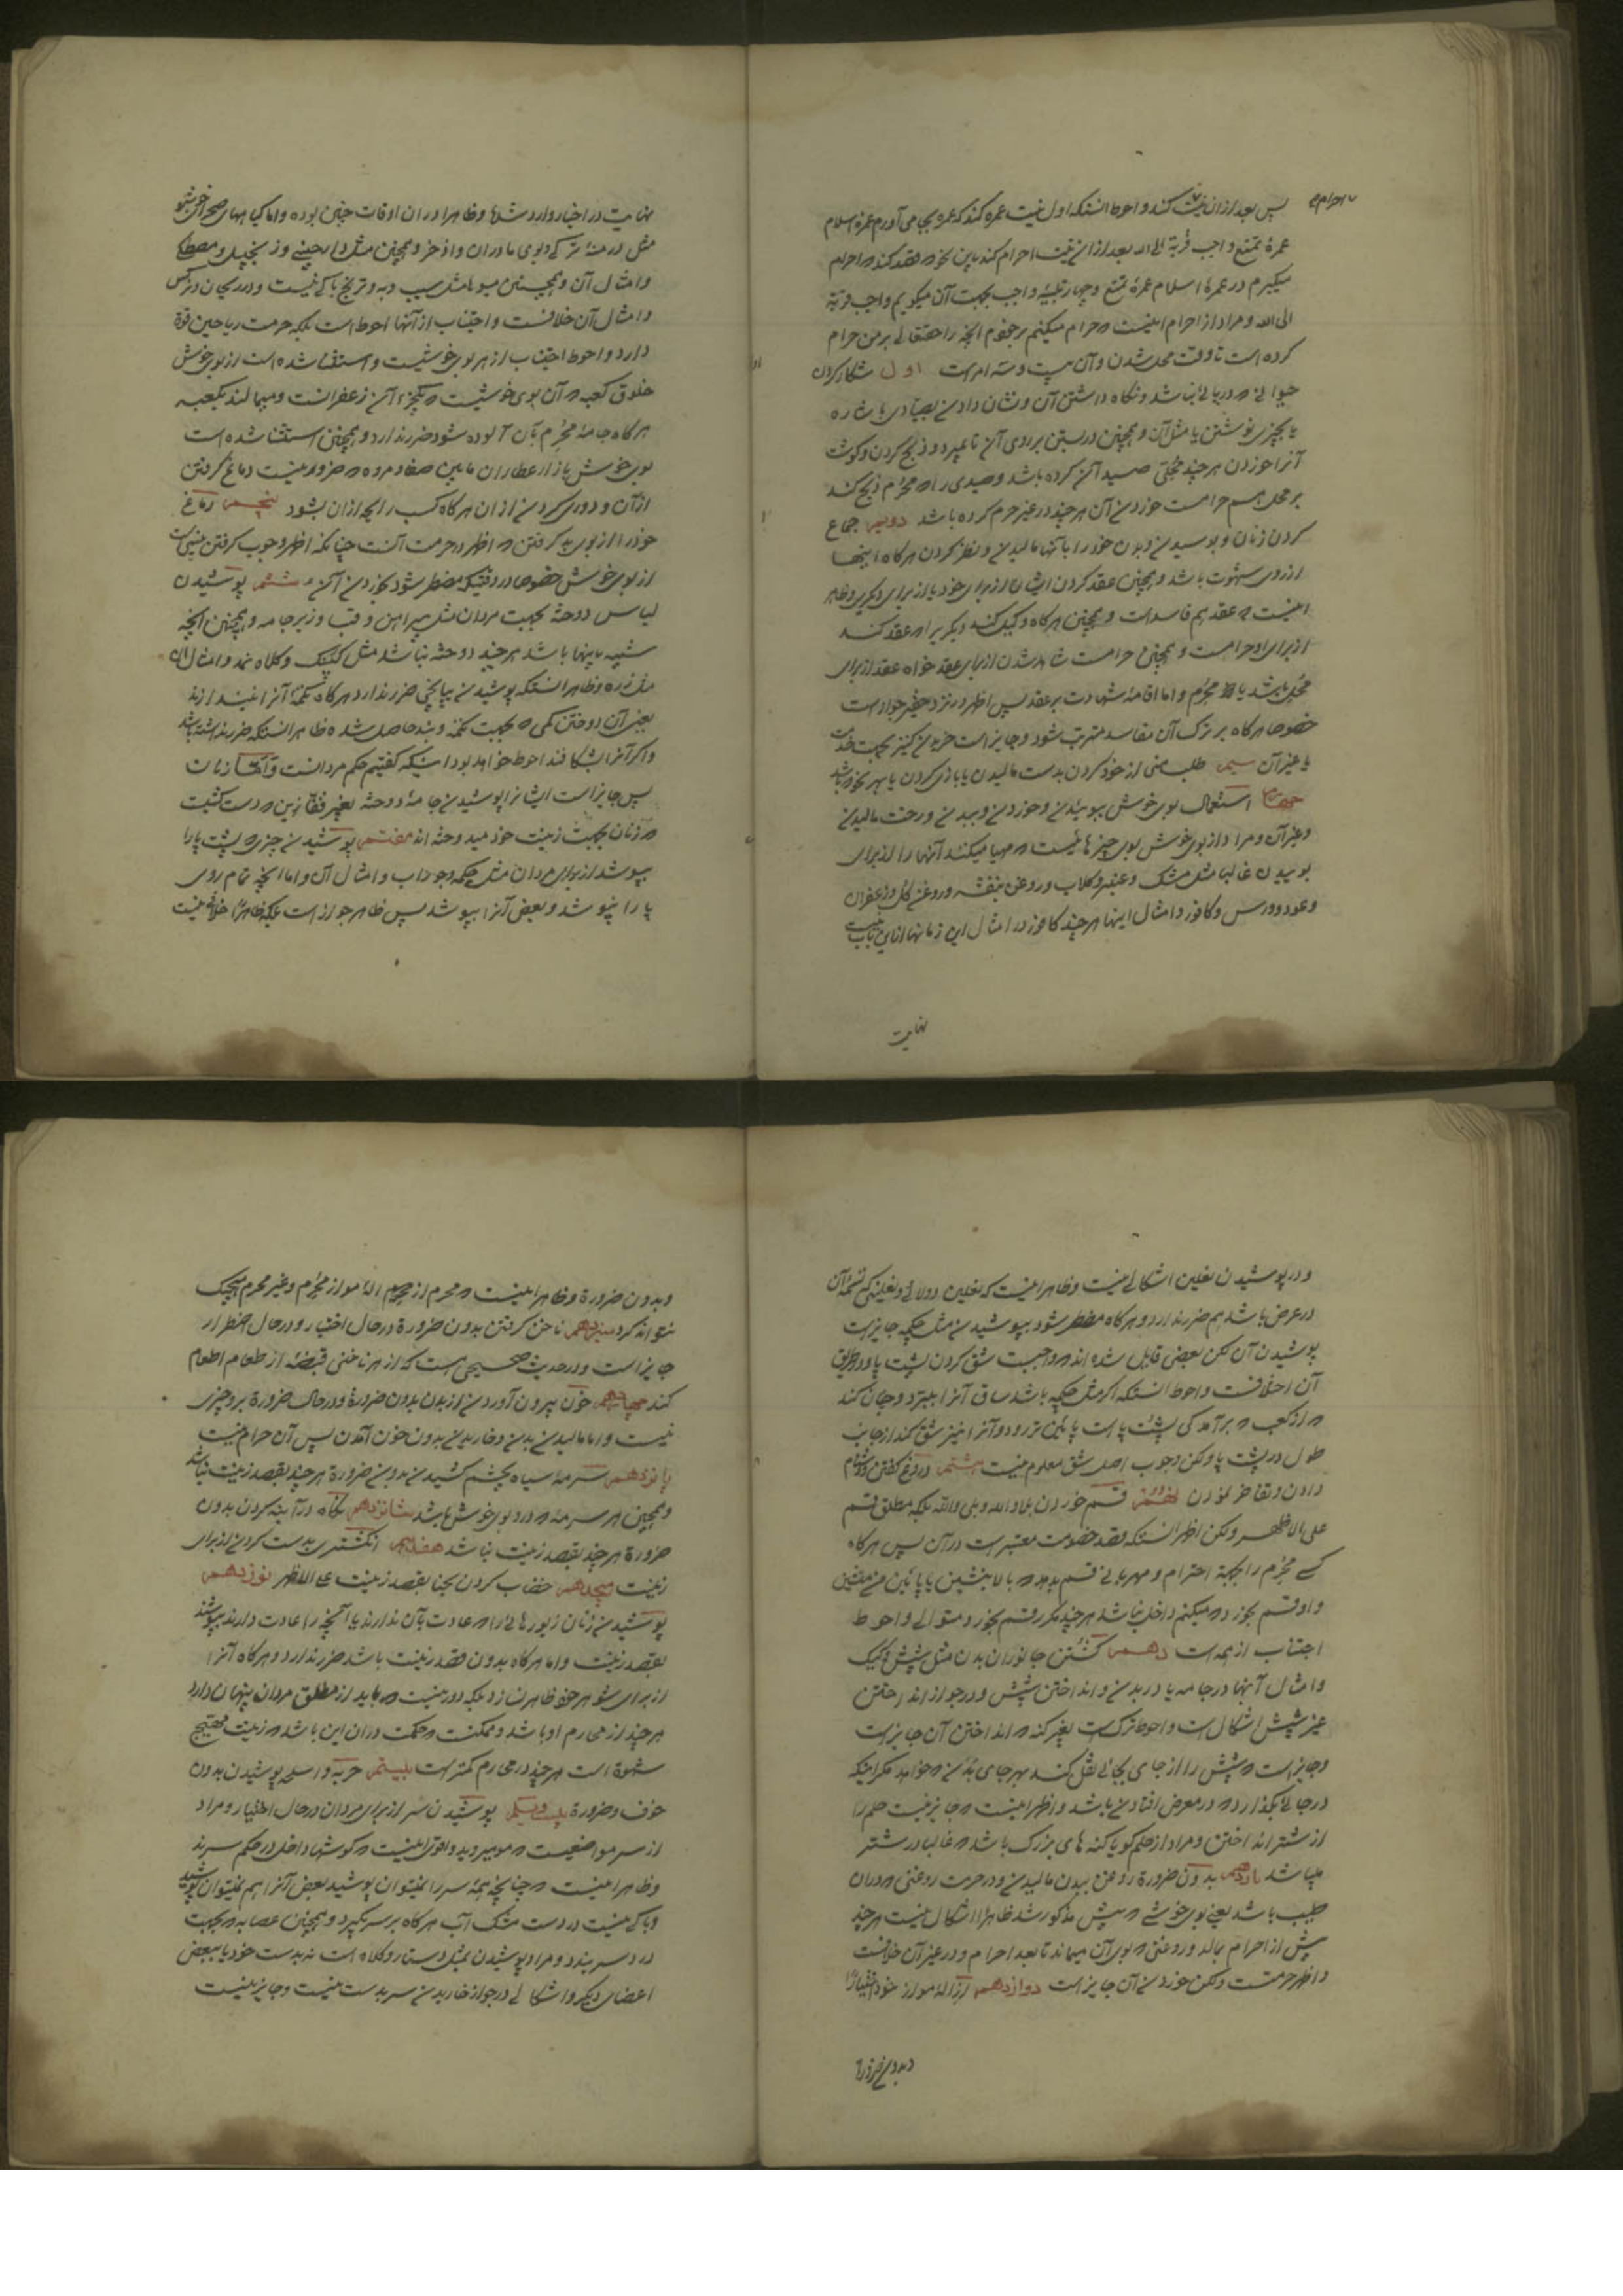 پس بعد از ان نیت کند و احوط انستکه اول نیت عمره کند که عمره بجا می آورم عمرهٔ اسلام
عمرهٔ تمتع واجب قربة الی الله بعد از ان نیت احرام کند باین نحو که قصد کند که احرام
میگیرم در عمرهٔ اسلام عمرهٔ تمتع و چهار تلبیهٔ واجب بجهت آن میگویم واجب قربة
الی الله و مراد از احرام اینست که حرام میکنم بر خودم آنچه را حقتعالی بر من حرام
کرده است تا وقت محل شدن و آن بیست و سه امر است اول شکار کردن
حیوانی که دریائی نباشد و نگاه داشتن آن و نشان دادن بصیادی باشاره
یا بچیزی نوشتن یا مثل آن و همچنین در بستن بر روی آن تا بمیرد و ذبح کردن و گوشت
آنرا خوردن هر چند محلی صید آن کرده باشد و صیدی را که محرم ذبح کند
بر محل هم حرامست خوردن آن هر چند در غیر حرم کرده باشد دویم جماع
کردن زنان و بوسیدن و بدن خود را بآنها مالیدن و نظر کردن هر گاه اینها
از روی شهوت باشد و همچنین عقد کردن ایشان از برای خود یا از برای دیگری و ظاهر
اینست که عقد هم فاسد است و همچنین هر گاه وکیل کند دیگریرا که عقد کند
از برای او حرامست و همچنین حرامست شاهد شدن از برای عقد خواه عقد از برای
محل باشد یا محرم و اما اقامهٔ شهادت بر عقد پس اظهر در نزد حقیر جواز است
خصوصا هر گاه بر ترک آن مفاسد مترتب شود و جایز است خریدن کنیز بجهت خدمت
یا غیر آن سیم طلب منی از خود کردن بدست مالیدن یا بازی کردن یا بهر نحو که باشد
چهارم استعمال بوی خوش ببوئیدن و خوردن و ببدن و رخت مالیدن
و غیر آن و مراد از بوی خوش بوی چیزهائیست که مهیا میکنند آنها را از برای
بوییدن غالبا مثل مشک و عنبر و گلاب و روغن بنفشه و روغن گل و زعفران
و عود و ورس و کافور و امثال اینها هر چند کافور در امثال این زمانها از این باب نیست
نهایت
نهایت در اخبار وارد شده و ظاهرا در ان اوقات چنین بوده و اما گیاههای صحرا خوشبو
مثل درمنهٔ ترکی و بوی مادران و اذخر و همچنین مثل دارچینی و زنجبیل و مصطکی
و امثال آن و همچنین میوها مثل سیب و به و ترنج باکی نیست و در ریحان و نرگس
و امثال آن خلافست و اجتناب از آنها احوط است بلکه حرمت ریاحین قوة
دارد و احوط اجتناب از هر بوی خوشیست و استثنا شده است از بوی خوش
خلوق کعبه که آن بوی خوشیست که یکجزء آن زعفرانست و میمالند بکعبه
هر گاه جامهٔ محرم بآن آلوده شود ضرر ندارد و همچنین استثنا شده است
بوی خوش بازار عطاران مابین صفا و مروه که ضرور نیست دماغ گرفتن
از آن و دوری کردن از ان هر گاه کسب رایحه از ان بشود پنجم دماغ
خود را از بوی بد گرفتن که اظهر در حرمت آنست چنانکه اظهر وجوب گرفتن بینی است
از بوی خوش خصوصا در وقتیکه مضطر شود بخوردن آن ششم پوشیدن
لباس دوخته بجهت مردان مثل پیراهن و قبا و زیر جامه و همچنین آنچه
شبیه باینها باشد هر چند دوخته نباشد مثل کپنک و کلاه نمد و امثال ان
مثل زره و ظاهر انستکه پوشیدن پیاپخی ضرر ندارد هر گاه تکمهٔ آنرا نیندازند
یعنی آن دوختن کمی که بجهت تکمه و بند حاصل شده ظاهر انستکه ضرر نداشته باشد
و اگر آنرا بشکافند احوط خواهد بود اینکه گفتیم حکم مردانست و اما زنان
پس جایز است ایشانرا پوشیدن جامهٔ دوخته بغیر قفازین که دستکشیست
که زنان بجهت زینت خود میدوخته اند هفتم پوشیدن چیزی که پشت پا را
بپوشد از برای مردان مثل چکمه و جوراب و امثال آن و اما آنچه تمام روی
پا را نپوشد و بعض آنرا بپوشد پس ظاهر جواز است بلکه ظاهرا خلافی نیست
و در پوشیدن نعلین اشکالی نیست و ظاهر اینست که نعلین دولائی و نعلینی که تسمهٔ آن
در عرض باشد هم ضرر ندارد و هر گاه مضطر شود بپوشیدن مثل چکمه جایز است
پوشیدن آن لکن بعضی قایل شده اند که واجبست شق کردن پشت پا و در طریق
آن اختلافست و احوط انستکه اگر مثل چکمه باشد ساق آنرا ببرد و چنان کند
که از کعب که برآمدگی پشت پا است پائین تر رود و آنرا نیز شق کند از جانب
طول در پشت پا ولکن وجوب اصل شق معلوم نیست هشتم دروغ گفتن و دشنام
دادن و تفاخر نمودن نهم قسم خوردن بلا والله و بلی والله بلکه مطلق قسم
علی الاظهر ولکن اظهر انستکه قصد خصومت معتبر است در آن پس هر گاه
کسی محرم را بجهة احترام و مهربانی قسم بدهد که بالا بنشین یا پائین منشین
و او قسم بخورد که میکنم داخل نباشد هر چند مکرر قسم بخورد متوالی و احوط
اجتناب از همه است دهم کشتن جانوران بدن مثل شپش و کیک
و امثال آنها در جامه یا در بدن و انداختن شپش و در جواز انداختن
غیر شپش اشکال است و احوط ترکست بغیر کنه که انداختن آن جایز است
و جایز است که شپش را از جای بجائی نقل کند بهر جای بدن که خواهد مگر اینکه
در جائی بگذارد که در معرض افتادن باشد و اظهر اینست که جایز نیست حلم را
از شتر انداختن و مراد از حلم گویا کنه های بزرگ باشد که غالبا در شتر
میباشد یازدهم بدون ضرورة روغن ببدن مالیدن و در حرمت روغنی که در ان
طیب باشد یعنی بوی خوشی که پیش مذکور شد ظاهرا اشکال نیست هر چند
پیش از احرام بمالد و روغنی که بوی آن میماند تا بعد احرام و در غیر آن خلافست
و اظهر حرمتست ولکن خوردن آن جایز است دوازدهم ازالهٔ مو از خود اختیارا
و بدون ضرورة
و بدون ضرورة و ظاهر اینست که محرم ازالهٔ مو از محرم و غیر محرم هیچیک
نتواند کرد سیزدهم ناخن گرفتن بدون ضرورة در حال اختیار و در حال اضطرار
جایز است و در حدیث صحیحی است که از هر ناخنی قبضهٔ از طعام اطعام
کند چهاردهم خون بیرون آوردن از بدن بدون ضرورة و در حال ضرورة بر او چیزی
نیست و اما مالیدن بدن و خاریدن بدون خون آمدن پس آن حرام نیست
پانزدهم سرمهٔ سیاه بچشم کشیدن بدون ضرورة هر چند بقصد زینت نباشد
و همچنین هر سرمهٔ که در او بوی خوش باشد شانزدهم نگاه در آینه کردن بدون
ضرورة هر چند بقصد زینت نباشد هفدهم انگشتری بدست کردن از برای
زینت هیجدهم خضاب کردن بحنا بقصد زینت علی الاظهر نوزدهم
پوشیدن زنان زیورهائی را که عادت بآن ندارند یا آنچه را عادت دارند بپوشند
بقصد زینت و اما هر گاه بدون قصد زینت باشد ضرر ندارد و هر گاه آنرا
از برای شوهر خود ظاهر نسازد بلکه دور نیست که باید از مطلق مردان پنهان دارد
هر چند از محارم او باشد و ممکنست که حکمت در ان این باشد که زینت مهیج
شهوة است هر چند در محارم کمتر است بیستم حربه و اسلحه پوشیدن بدون
خوف و ضرورة بیست و یکم پوشیدن سر از برای مردان در حال اختیار و مراد
از سر مواضعیست که مو میروید و اقوی اینست که گوشها داخل در حکم سرند
و ظاهر اینست که چنانچه همهٔ سر را نمیتوان پوشید بعض آنرا هم نمیتوان پوشید
و باکی نیست در دست مشک آب هر گاه بر سر بگیرد و همچنین عصابه که بجهت
درد سر بندد و مراد پوشیدن بمثل دستار و کلاه است نه بدست خود یا ببعض
اعضای دیگر و اشکالی در جواز خاریدن سر بدست نیست و جایز نیست